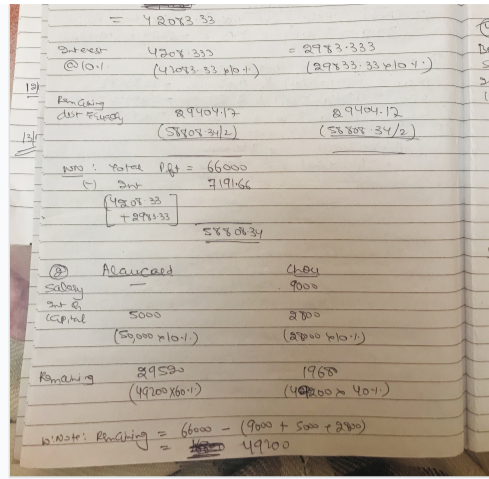 = 42083.33
Interest 4208.333 = 2983.333
@10% (42083.33 x10%) (29833.33 x10%)
12/
Remaining 29404.17 29404.17
dist equally (58808.34/2) (58808.34/2)
13/
WN: Total Pft = 66000
(-) Int 7191.66
4208.33
+ 2983.33
58808.34
② Chou
Salary — 9000
Int on
Capital 5000 2800
(50,000 x10%) (28000 x10%)
Remaining 29520 19680
(49200 X60%) (49200 x 40%)
W.Note: Remaining = 66000 - (9000 + 5000 + 2800)
= 49200